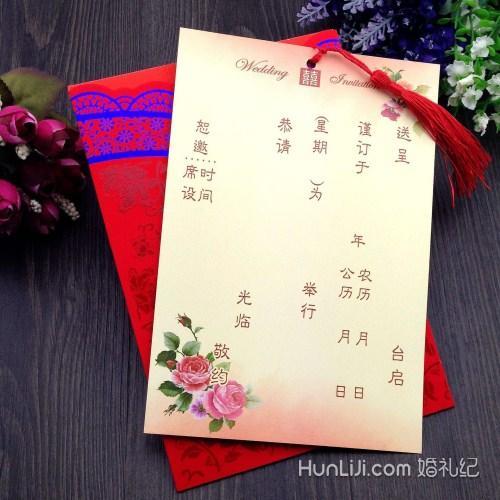 Wedding 囍 Invitation
送呈 台启
谨订于 年 农历 月 日
公历 月 日
(星期 )为
举行
恭请
光临
敬约
恕邀……
时间
席设
HunLiJi.com 婚礼纪